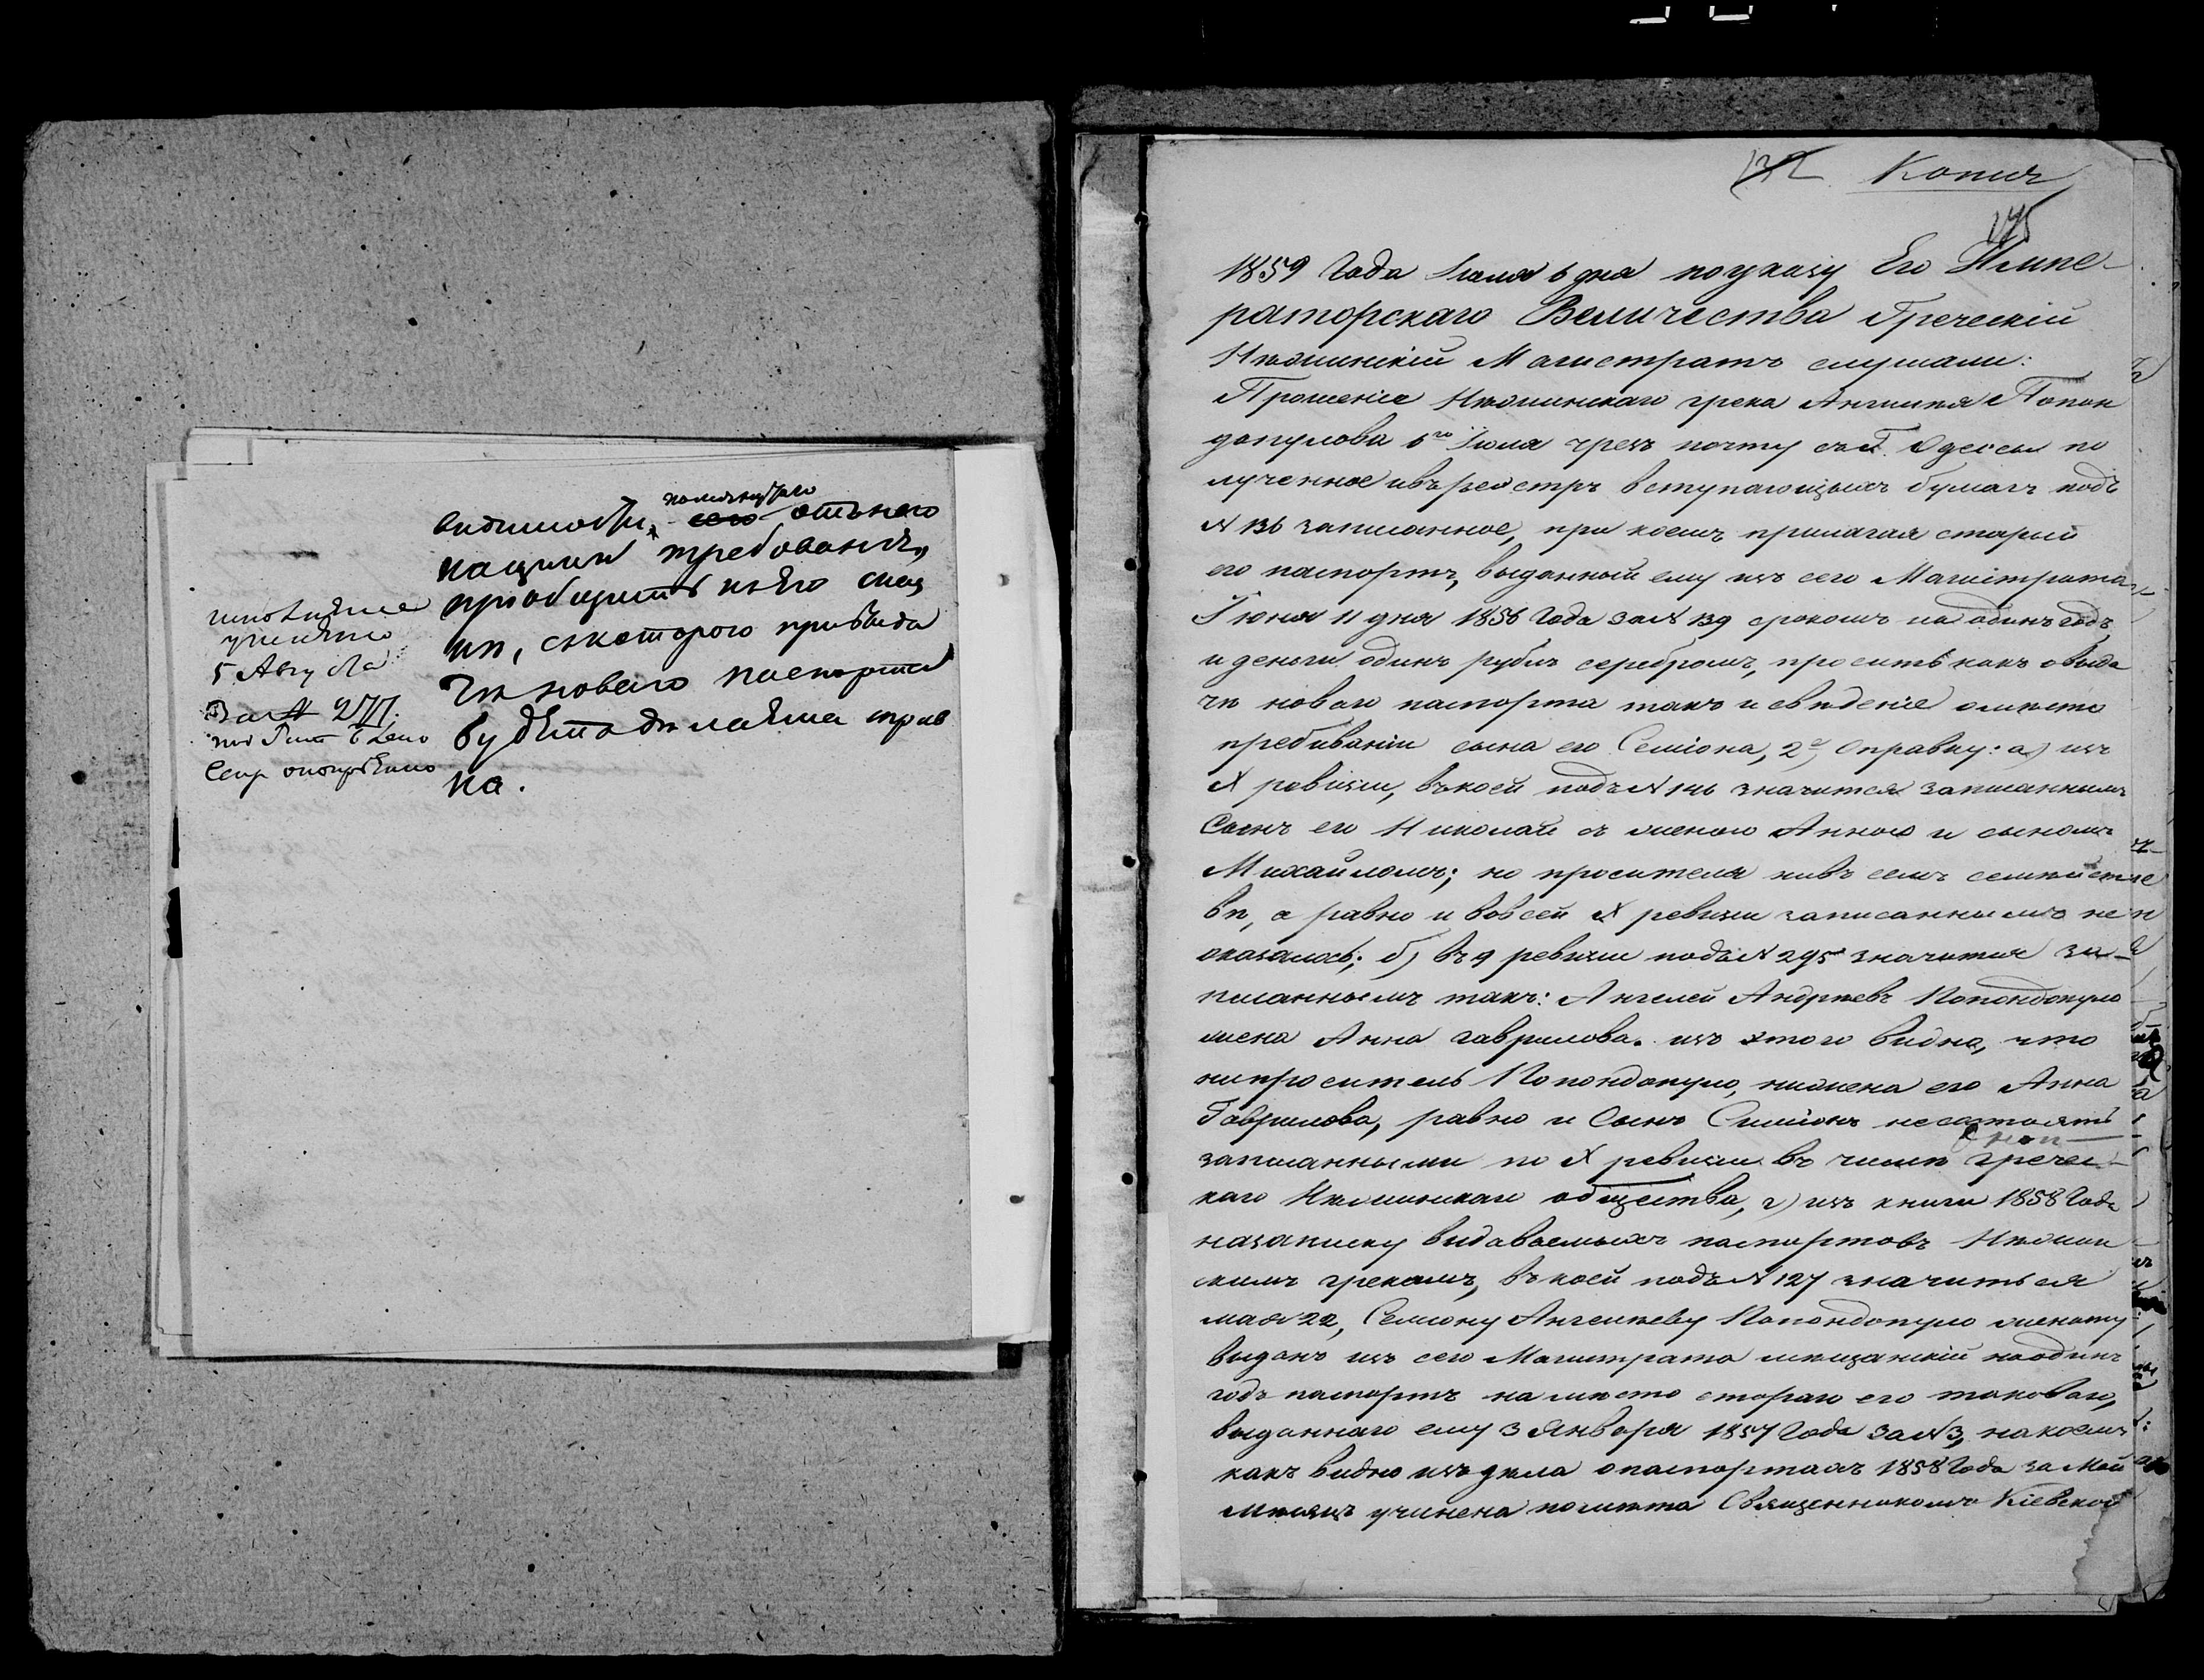 видимости, помянутаго отъ него
нащим требования,
приобщить къ его спра
ки, с котораго при выда
чи новаго паспорта
будетъ дѣлаема справ
ка.
исполнение
учинено
5 Августа
За № 277.
132 Копия
175
1859 года Іюля 6 дня по указу Его Импе-
раторскаго Величества Греческій
Нѣжинскій Магистратъ слушали:
Прошеніе Нѣжинскаго грека Ангелія Попон
допулова 6го Іюля чрезъ почту съ Г. Одессы по
лученное и въ реэстръ вступающихъ бумагъ подъ
№ 136 записанное, при коемъ прилагая старый
его паспортъ, выданный ему изъ сего Магистрата
Іюня 11 дня 1856 года за № 139 срокомъ на одинъ годъ
и деньги одинъ рубль серебромъ, проситъ какъ о выда
чѣ новаго паспорта такъ и свѣдѣніе о мѣсто
пребываніи сына его Семіона, 2е, Справку: а) изъ
X ревизіи, въ коей подъ № 146 значится записаннымъ
Сынъ его Николай съ женою Анною и сыномъ
Михайломъ; но просителя ни въ семъ семейст
вѣ, а равно и во всей X ревизіи записаннымъ не
оказалось; б) въ 9 ревизіи подъ № 295 значится за-
писаннымъ такъ: Ангелей Андреевъ Попондопуло
жена Анна Гаврилова. изъ этого видно, что
ни проситель Попондопуло, ни жена его Анна
Гаврилова, равно и Сынъ Симіонъ не состоятъ
записанными по X ревизіи въ числѣ гречес-
каго Нѣжинскаго общества, г) изъ книги 1858 года
на записку видаваемыхъ паспортовъ Нѣжин
скимъ грекамъ, въ коей подъ № 127 значиться
мая 22, Семіону Ангелѣеву Попондопуло женату
выданъ изъ сего Магистрата мѣщанскій на одинъ
годъ паспортъ на мѣсто стораго его таковаго,
выданнаго ему 3 Января 1857 года за № 3, на коемъ
какъ видно изъ дѣла о паспортахъ 1858 года за Май
мѣсяцъ учинена помѣтта Священникомъ Кіевской